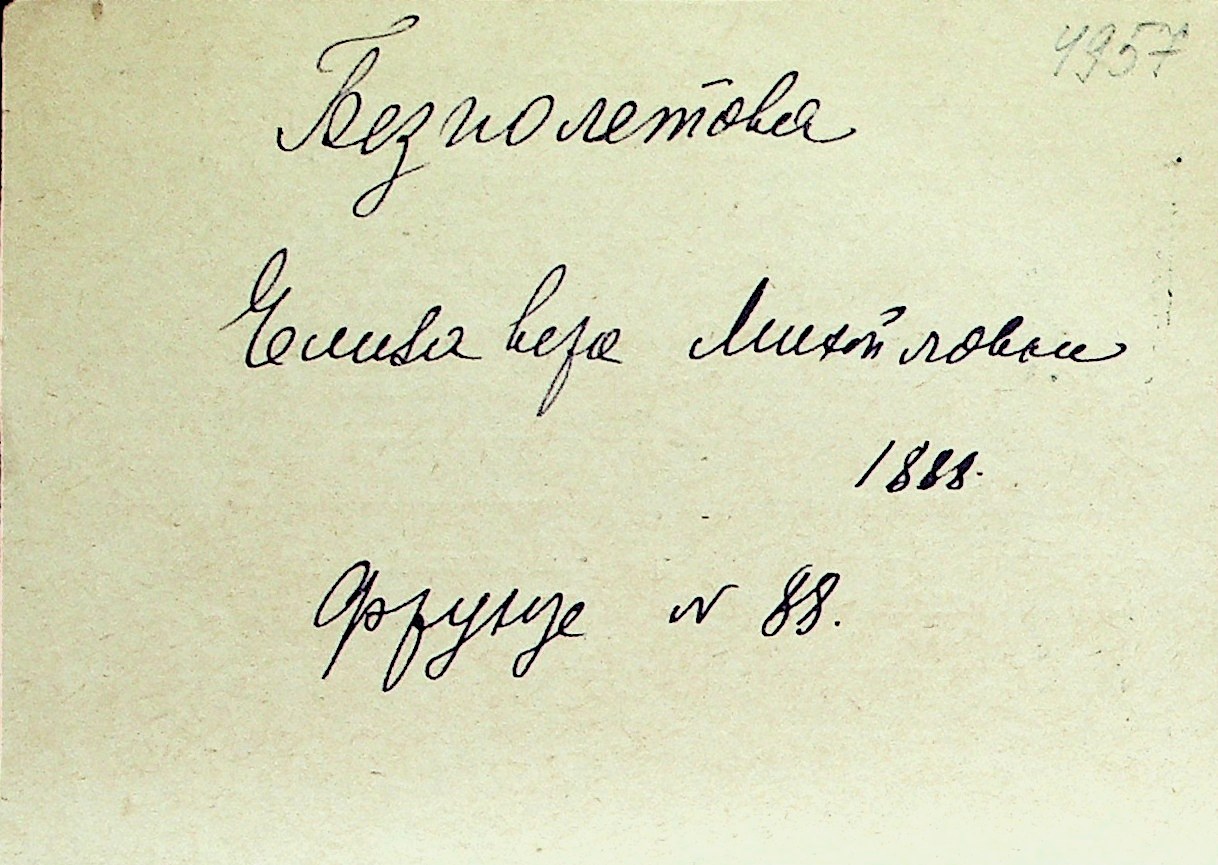 4957
Безполетова
Елизавета Михайловна
1888.
Фрунзе N 88.